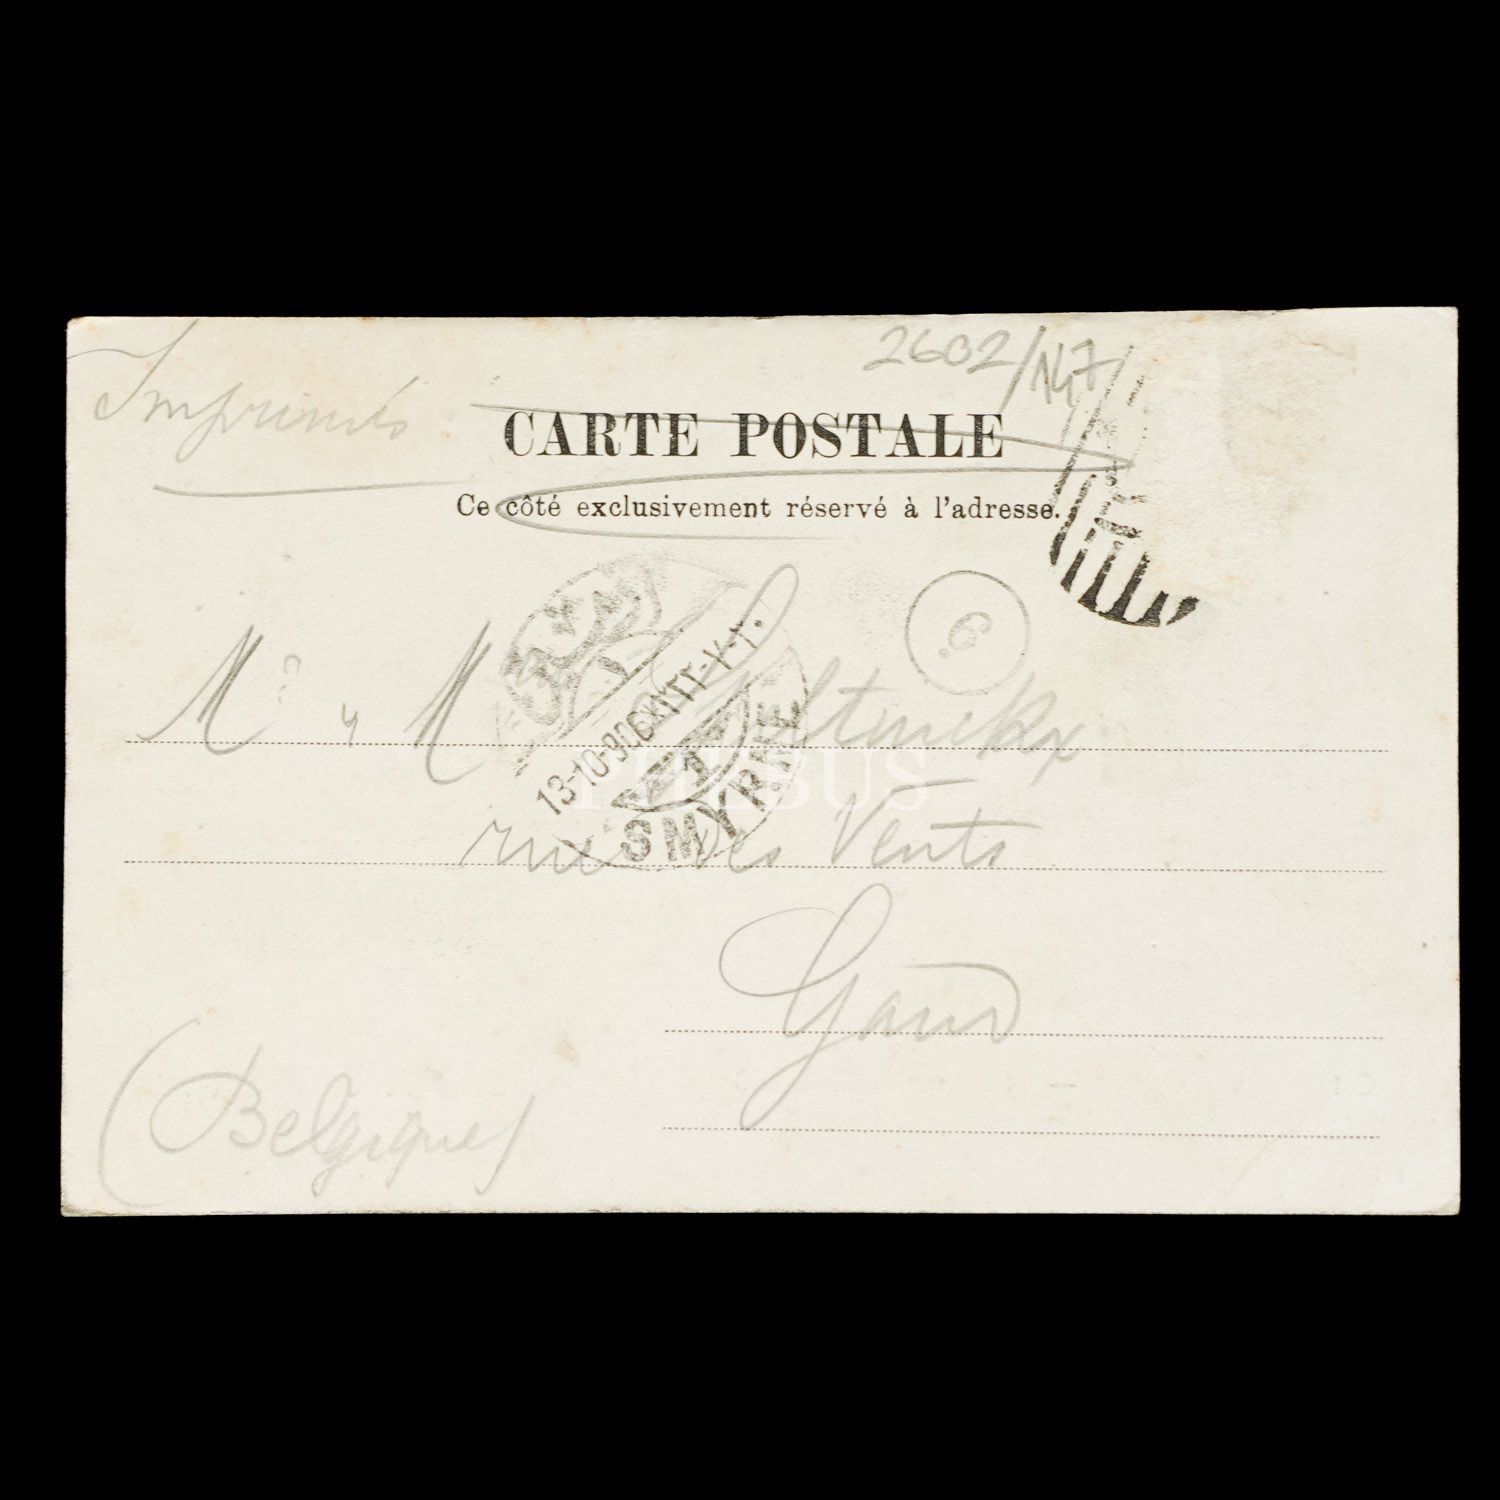 2602/147
Imprimés
CARTE POSTALE
Ce côté exclusivement réservé à l'adresse.
6
13-10-906
SMYRNE
1
PHEBUS
rue des Vents
Gand
(Belgique)